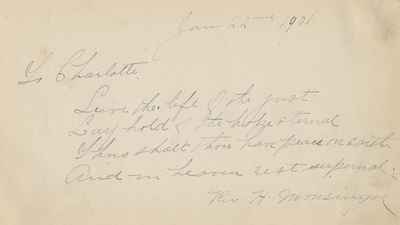 Jan 22nd 1901
To Charlotte.
Live the life of the just
Lay hold of the hope eternal
Thus shalt thou have peace on earth
And in heaven rest supernal.
H.